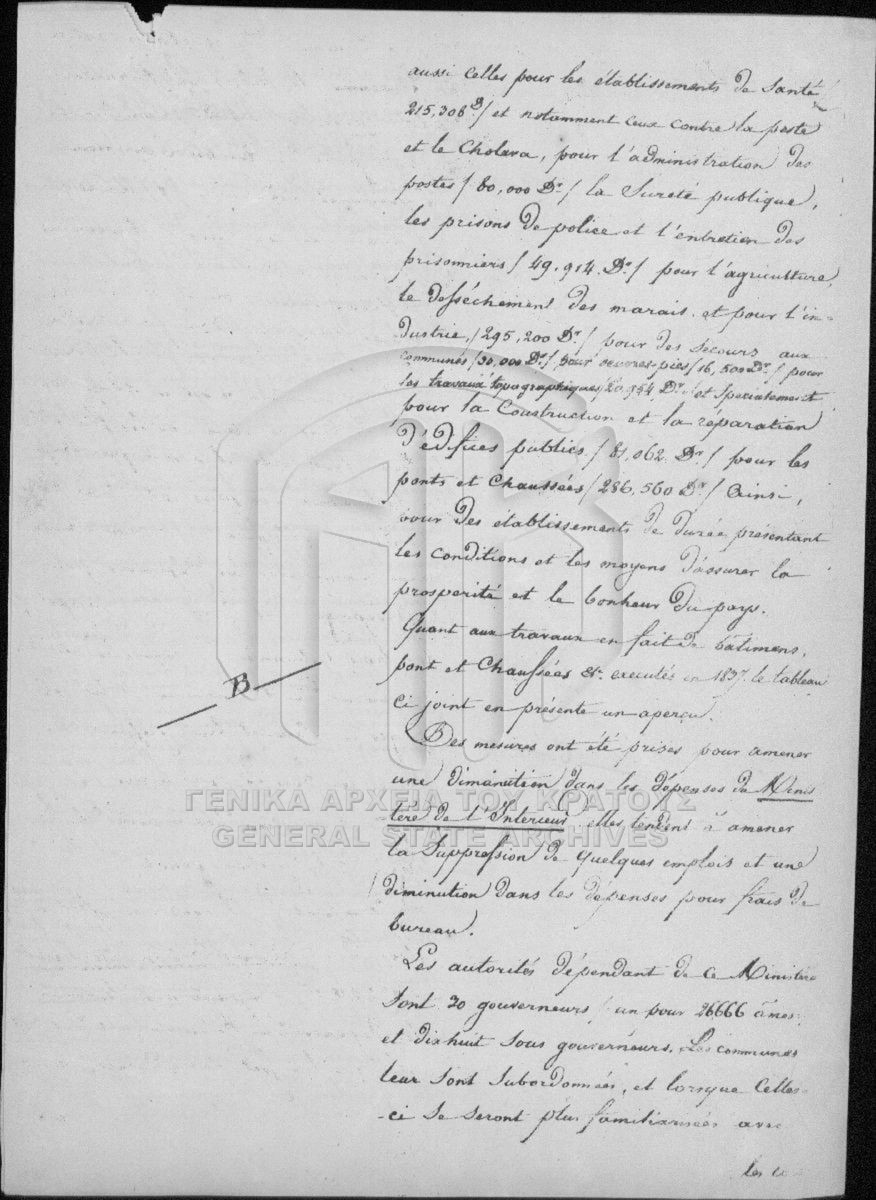 aussi celles pour les établissements de Santé
215,306 Dr/ et notamment ceux contre la peste
et le Cholera, pour l'administration des
postes / 80,000 Dr / la Sureté publique,
les prisons de police et l'entretien des
prisonniers / 49,914 Dr / pour l'agriculture,
le desséchement des marais et pour l'in-
dustrie, / 295,200 Dr / pour des secours aux
communes / 30,000 Dr / pour oeuvres pies / 16,500 Dr / pour
les travaux topographiques / 20,954 Dr / et Specialement
pour la Construction et la réparation
d'édifices publics / 81,062 Dr / pour les
ponts et Chaussées / 286,560 Dr / Ainsi,
pour des établissements de durée présentant
les conditions et les moyens d'assurer la
prosperité et le bonheur du pays.
Quant aux travaux en fait de bâtimens,
pont et Chaussées &c. executés en 1837. le tableau
B
ci joint en présente un aperçu.
Des mesures ont été prises pour amener
une diminution dans les dépenses du Minis
tère de l'Interieur elles tendent à amener
la Suppression de quelques emplois et une
diminution dans les dépenses pour frais de
bureau.
Les autorités dépendant de ce Ministère
Sont 30 gouverneurs / un pour 26666 âmes
et dixhuit Sous gouverneurs. Les communes
leur Sont Subordonnées, et lorsque Celles
-ci se seront plus familiarisées avec
les
ΓΕΝΙΚΑ ΑΡΧΕΙΑ ΤΟΥ ΚΡΑΤΟΥΣ
GENERAL STATE ARCHIVES